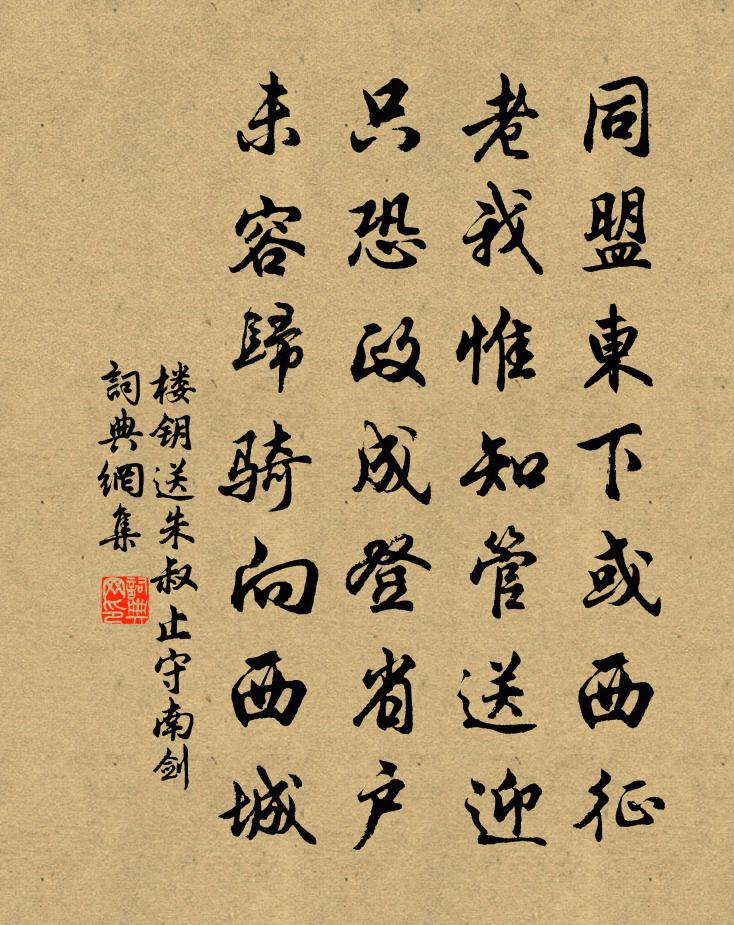 同盟東下或西征
老我惟知管送迎
只恐政成登省户
未容歸骑向西城
楼钥送朱叔止守南剑
詞典網集
詞典网印